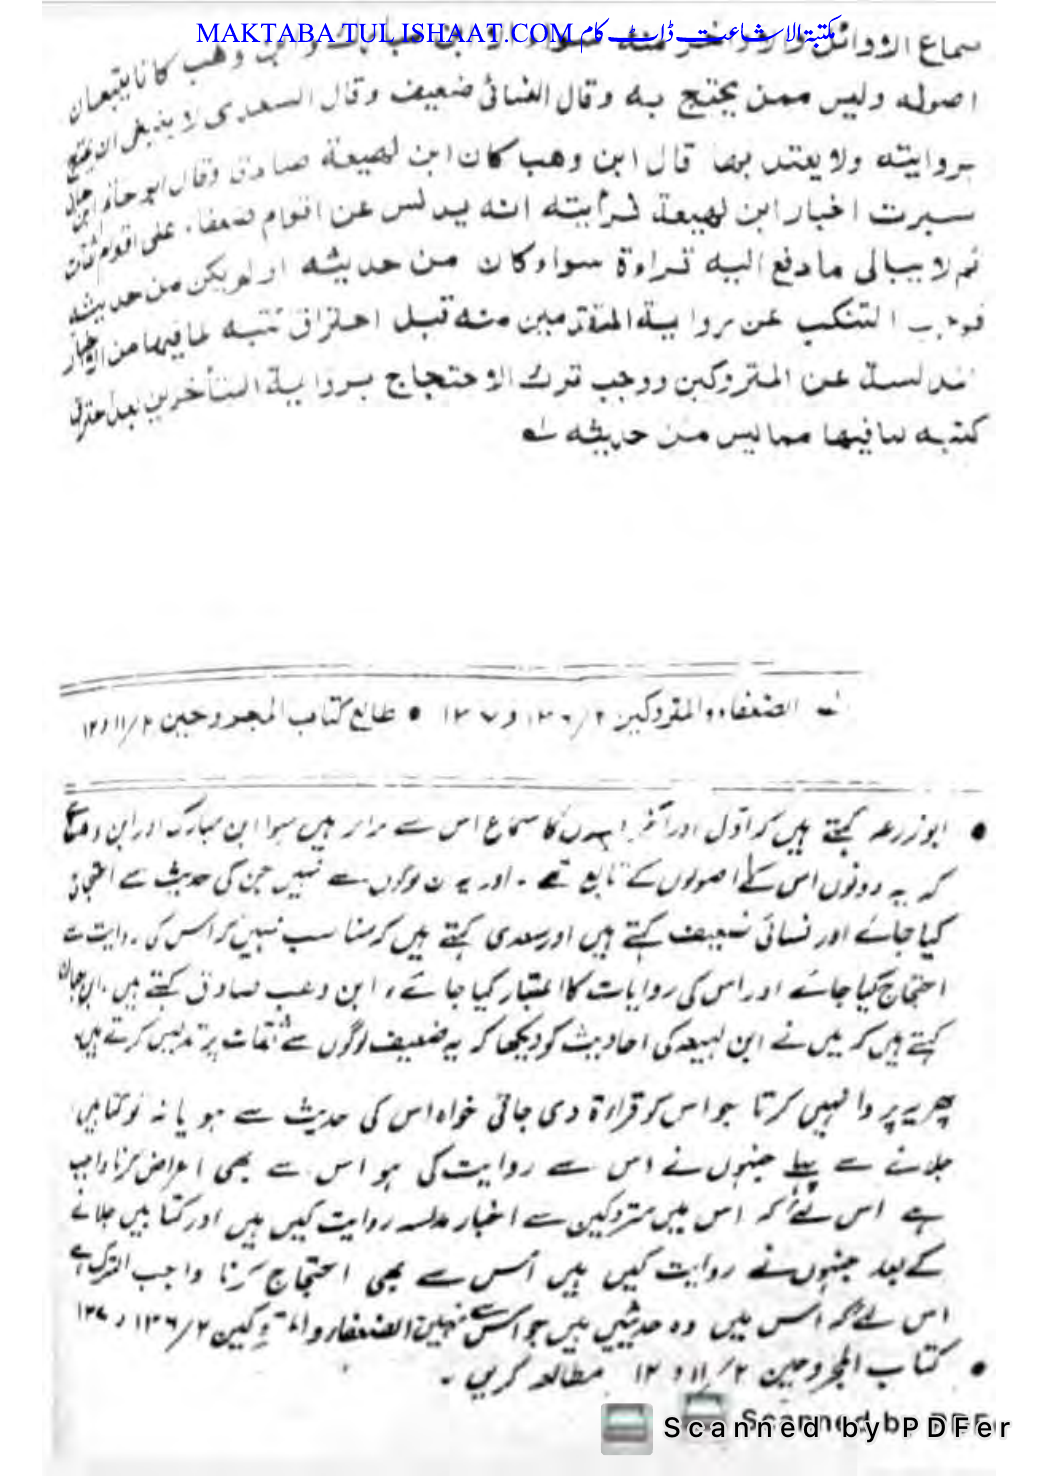 MAKTABA TUL ISHAAT.COM مکتبۃ الاشاعت ڈاٹ کام
سماع الاوائل والاواخر منه سواء الا ابن مبارك وابن وهب كانا يتبعان
اصوله وليس ممن يحتج به وقال النسائى ضعيف وقال السعدى لا ينبغى ان يحتج
بروايته ولا يعتد بها قال ابن وهب كان ابن لهيعة صادق وقال ابو حاتم ابن حبان
سبرت اخبار ابن لهيعة فرأيته انه يدلس عن اقوام ضعفاء على اقوام ثقات
ثم لا يبالى ما دفع اليه قراءة سواء كان من حديثه او لم يكن من حديثه
فوجب التنكب عن رواية المتقدمين منه قبل احتراق كتبه لما فيها من الاخبار
المدلسة عن المتروكين ووجب ترك الاحتجاج برواية المتأخرين بعد احتراق
كتبه لما فيها مما ليس من حديثه لہ
لہ الضعفاء والمتروكين ۲/ ۱۳۶ و ۱۳۷ • طالع كتاب المجروحين ۲/ ۱۱ و ۱۲
• ابوزرعہ کہتے ہیں کہ اوّل اور آخر کا سماع اس سے برابر ہیں سوا ابن مبارک اور ابن وہب کے
کہ یہ دونوں اس کے اصولوں کے تابع تھے ۔ اور یہ ان لوگوں سے نہیں جن کی حدیث سے احتجاج
کیا جائے اور نسائی ضعیف کہتے ہیں اور سعدی کہتے ہیں کہ مناسب نہیں کہ اس کی روایت سے
احتجاج کیا جائے اور اس کی روایات کا اعتبار کیا جائے ، ابن وہب صادق کہتے ہیں ۔ ابن حبان
کہتے ہیں کہ میں نے ابن لہیعہ کی احادیث کو دیکھا کہ یہ ضعیف لوگوں سے ثقات پر تدلیس کرتے ہیں ۔
پھر یہ پروا نہیں کرتا جو اس کو قراءۃ دی جاتی خواہ اس کی حدیث سے ہو یا نہ ہو کتابیں
جلانے سے پہلے جنہوں نے اس سے روایت کی ہو اس سے بھی اعراض کرنا واجب
ہے اس لئے کہ اس میں متروکین سے اخبار مدلسہ روایت کیں ہیں اور کتابیں جلانے
کے بعد جنہوں نے روایت کیں ہیں اُس سے بھی احتجاج کرنا واجب الترک ہے
اس لئے کہ اس میں وہ حدیثیں ہیں جو اس سے نہیں الضعفاء والمتروکین ۲/ ۱۳۶ و ۱۳۷
• کتاب المجروحین ۲/ ۱۱ و ۱۲ مطالعہ کریں ۔
Scanned by PDFer